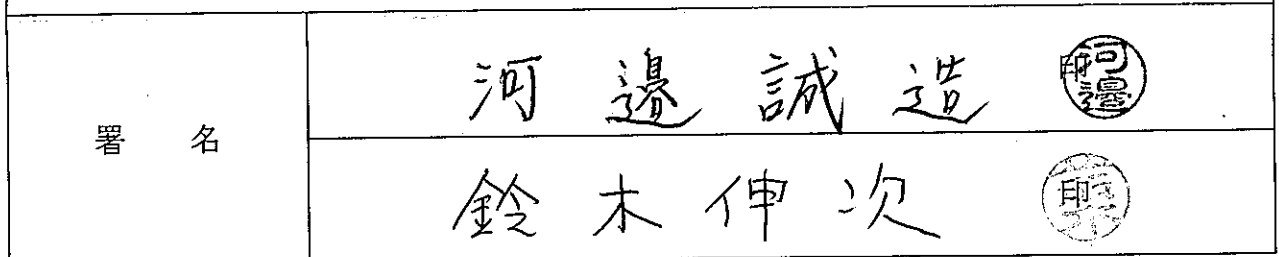 署名
河邊誠造 印 河邊
鈴木伸次 印